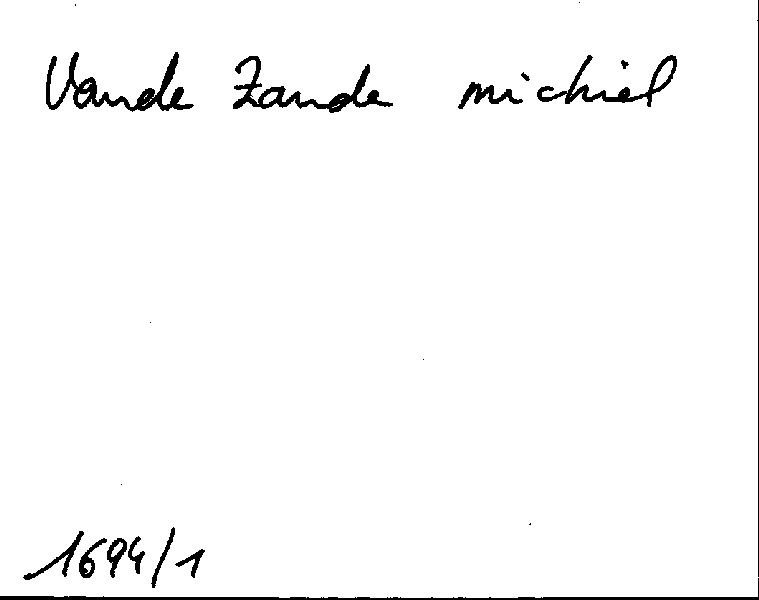 Vande Zande michiel
1694/1